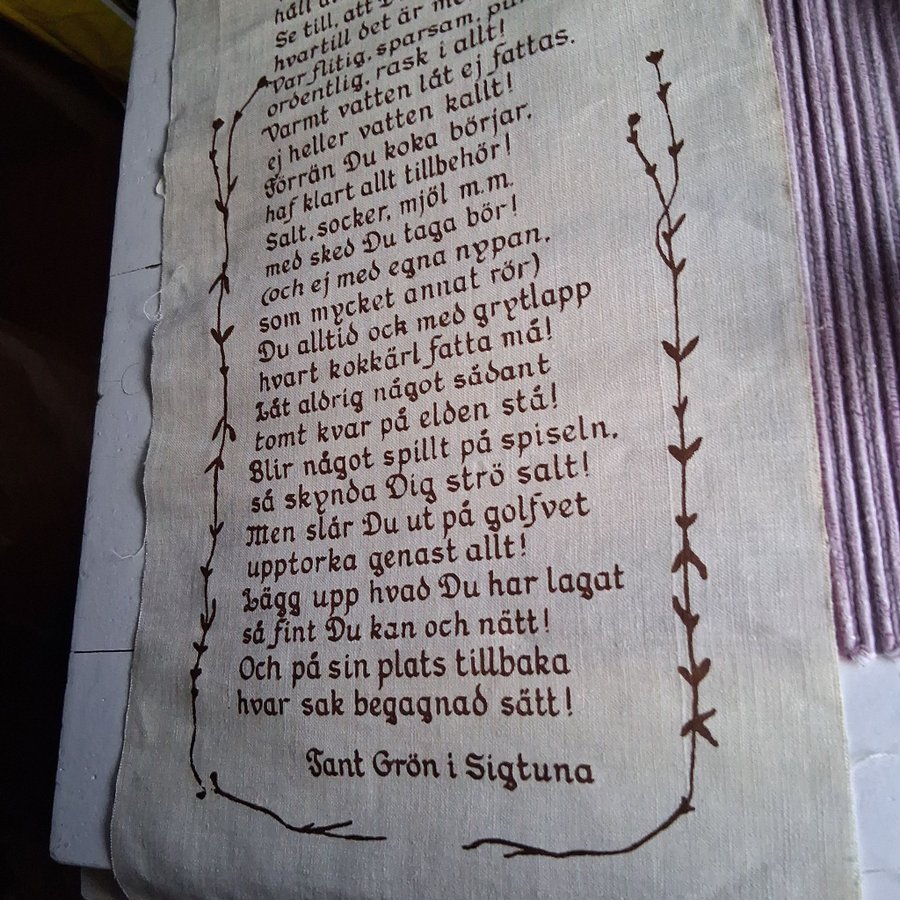 håll
Se till, att
hvartill det är
Var flitig, sparsam,
ordentlig, rask i allt!
Varmt vatten låt ej fattas.
ej heller vatten kallt!
Förrän Du koka börjar,
haf klart allt tillbehör!
Salt, socker, mjöl m.m.
med sked Du taga bör!
(och ej med egna nypan,
som mycket annat rör)
Du alltid ock med grytlapp
hvart kokkärl fatta må!
Låt aldrig något sådant
tomt kvar på elden stå!
Blir något spillt på spiseln,
så skynda Dig strö salt!
Men slår Du ut på golfvet
upptorka genast allt!
Lägg upp hvad Du har lagat
så fint Du kan och nätt!
Och på sin plats tillbaka
hvar sak begagnad sätt!
Tant Grön i Sigtuna